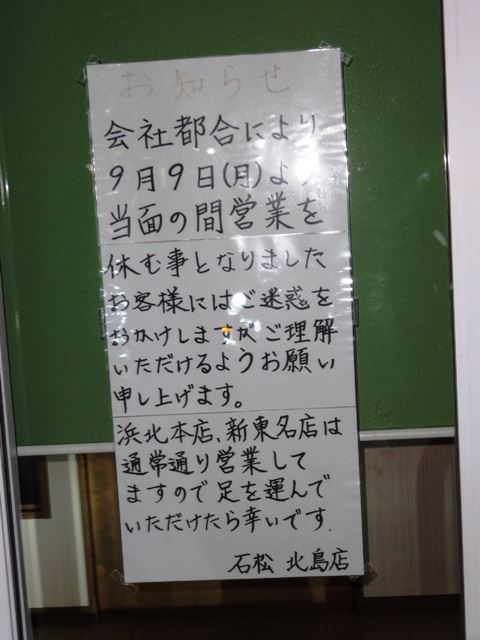 お知らせ
会社都合により
9月9日(月)より
当面の間営業を
休む事となりました
お客様にはご迷惑を
おかけしますがご理解
いただけるようお願い
申し上げます。
浜北本店、新東名店は
通常通り営業して
ますので足を運んで
いただけたら幸いです.
石松 北島店